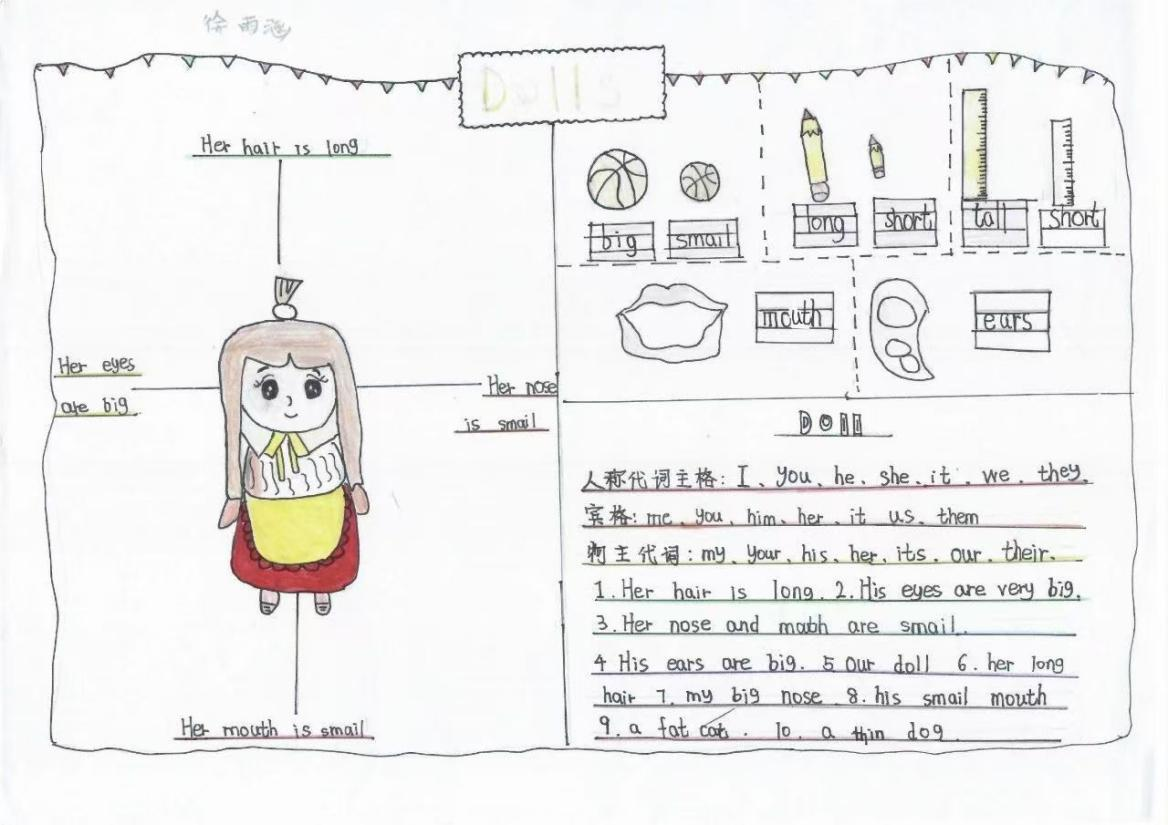 徐雨涵
Dolls
Her hair is long
Her eyes
are big
Her nose
is smail
Her mouth is smail
big smail long short tall short
mouth ears
Doll
人称代词主格: I、you、he、she、it、we、they.
宾格: me、you、him、her、it us、them
形主代词: my、your、his、her、its、our、their.
1. Her hair is long. 2. His eyes are very big.
3. Her nose and are smail.
4 His ears are big. 5 Our doll 6. her long
hair 7. my big nose 8. his smail mouth
9. a fat cat. 10. a thin dog.